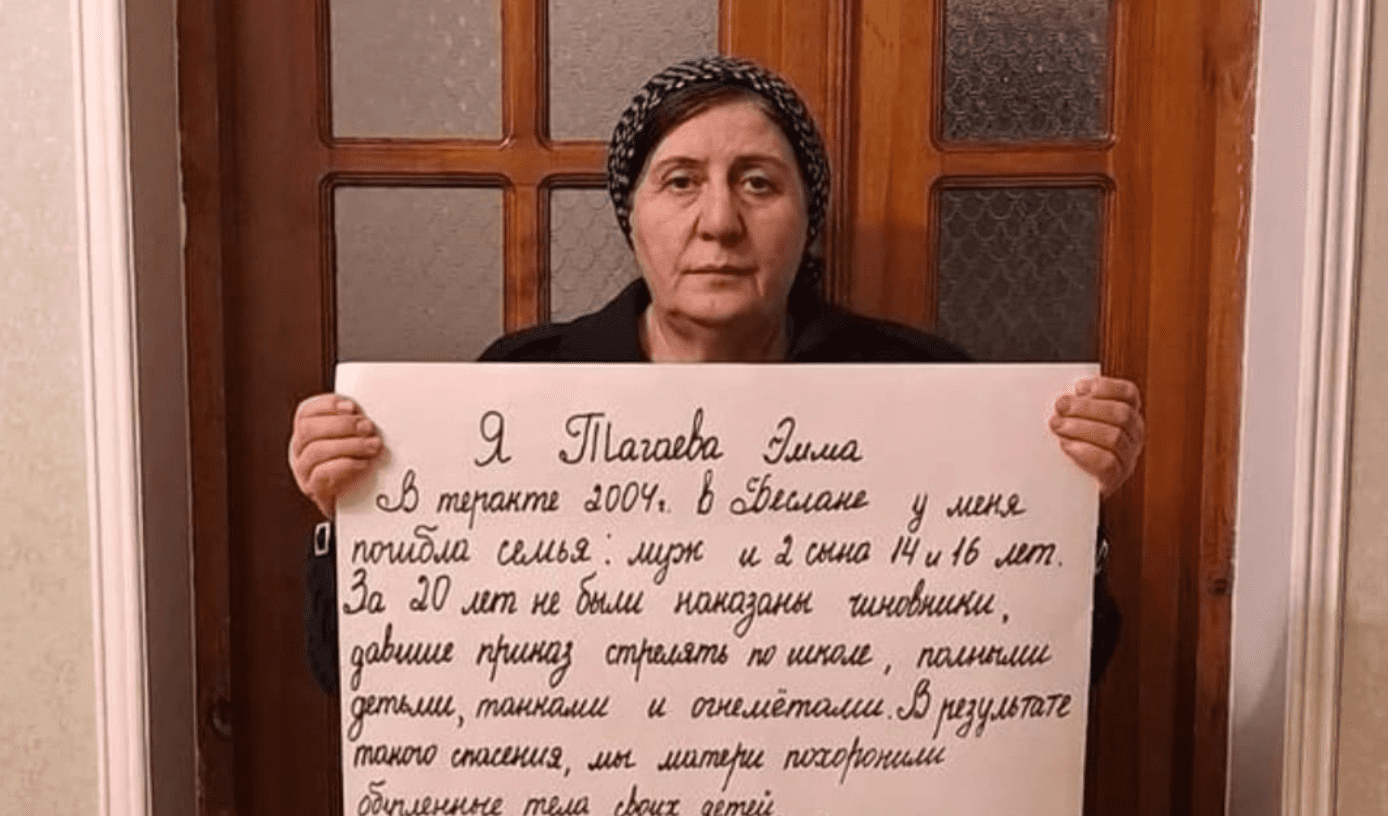 Я Тагаева Эмма
В теракте 2004г. в Беслане у меня
погибла семья: муж и 2 сына 14 и 16 лет.
За 20 лет не были наказаны чиновники,
давшие приказ стрелять по школе, полными
детьми, танками и огнемётами. В результате
такого спасения, мы матери похоронили
обугленные тела своих детей